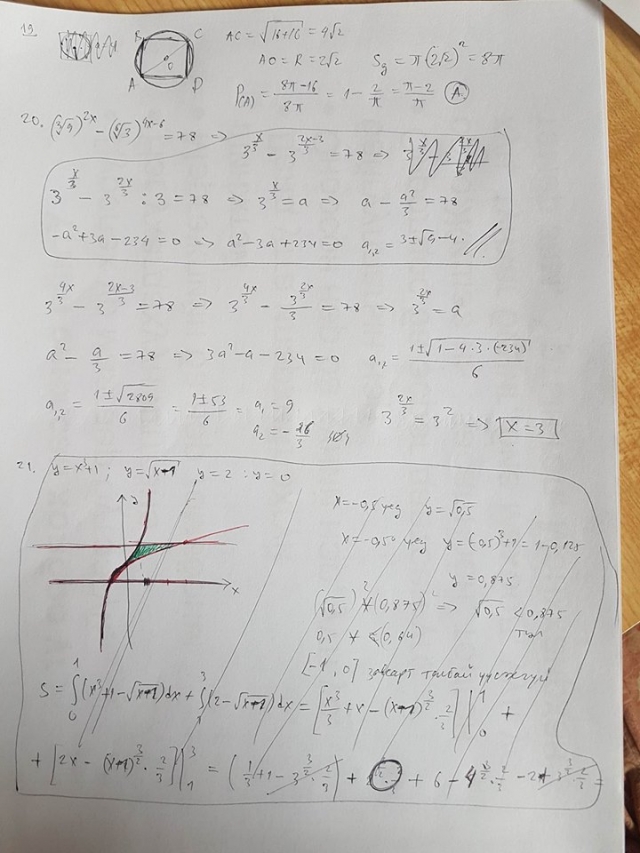 19
B C
A D
O
AC = √(16+16) = 4√2
AO = R = 2√2 S_g = π(2√2)² = 8π
P(A) = (8π-16)/8π = 1 - 2/π = (π-2)/π (A.)
20. (∛9)^(2x) - (∛3)^(4x-6) = 78 =>
3^(x/3) - 3^((2x-3)/3) = 78 =>
3^(x/3) - 3^(2x/3) : 3 = 78 => 3^(x/3) = a => a - a²/3 = 78
-a² + 3a - 234 = 0 => a² - 3a + 234 = 0 a₁,₂ = 3±√9-4·
3^(4x/3) - 3^((2x-3)/3) = 78 => 3^(4x/3) - 3^(2x/3)/3 = 78 => 3^(2x/3) = a
a² - a/3 = 78 => 3a² - a - 234 = 0 a₁,₂ = (1±√(1-4·3·(-234)))/6
a₁,₂ = (1±√2809)/6 = (1±53)/6 = a₁ = 9
a₂ = -26/3
3^(2x/3) = 3² => x = 3
21. y = x³+1 ; y = √(x+1) y = 2 ; y = 0
y
x
x = -0,5 үед y = √0,5
x = -0,5 үед y = (-0,5)³+1 = 1-0,125
y = 0,875
(√0,5)² * (0,875)² => √0,5 < 0,875
0,5 * < (0,64)
[-1, 0] завсарт талбай үүсэхгүй
S = ∫₀¹ (x³+1-√(x+1))dx + ∫₁³ (2-√(x+1))dx = [x³/3 + x - (x+1)^(3/2) · 2/3] |₀¹ +
+ [2x - (x+1)^(3/2) · 2/3] |₁³ = (1/3 + 1 - 3^(3/2) · 2/3) + + 6 - 4^(3/2) · 2/3 - 2 + 3^(3/2) · 2/3 =